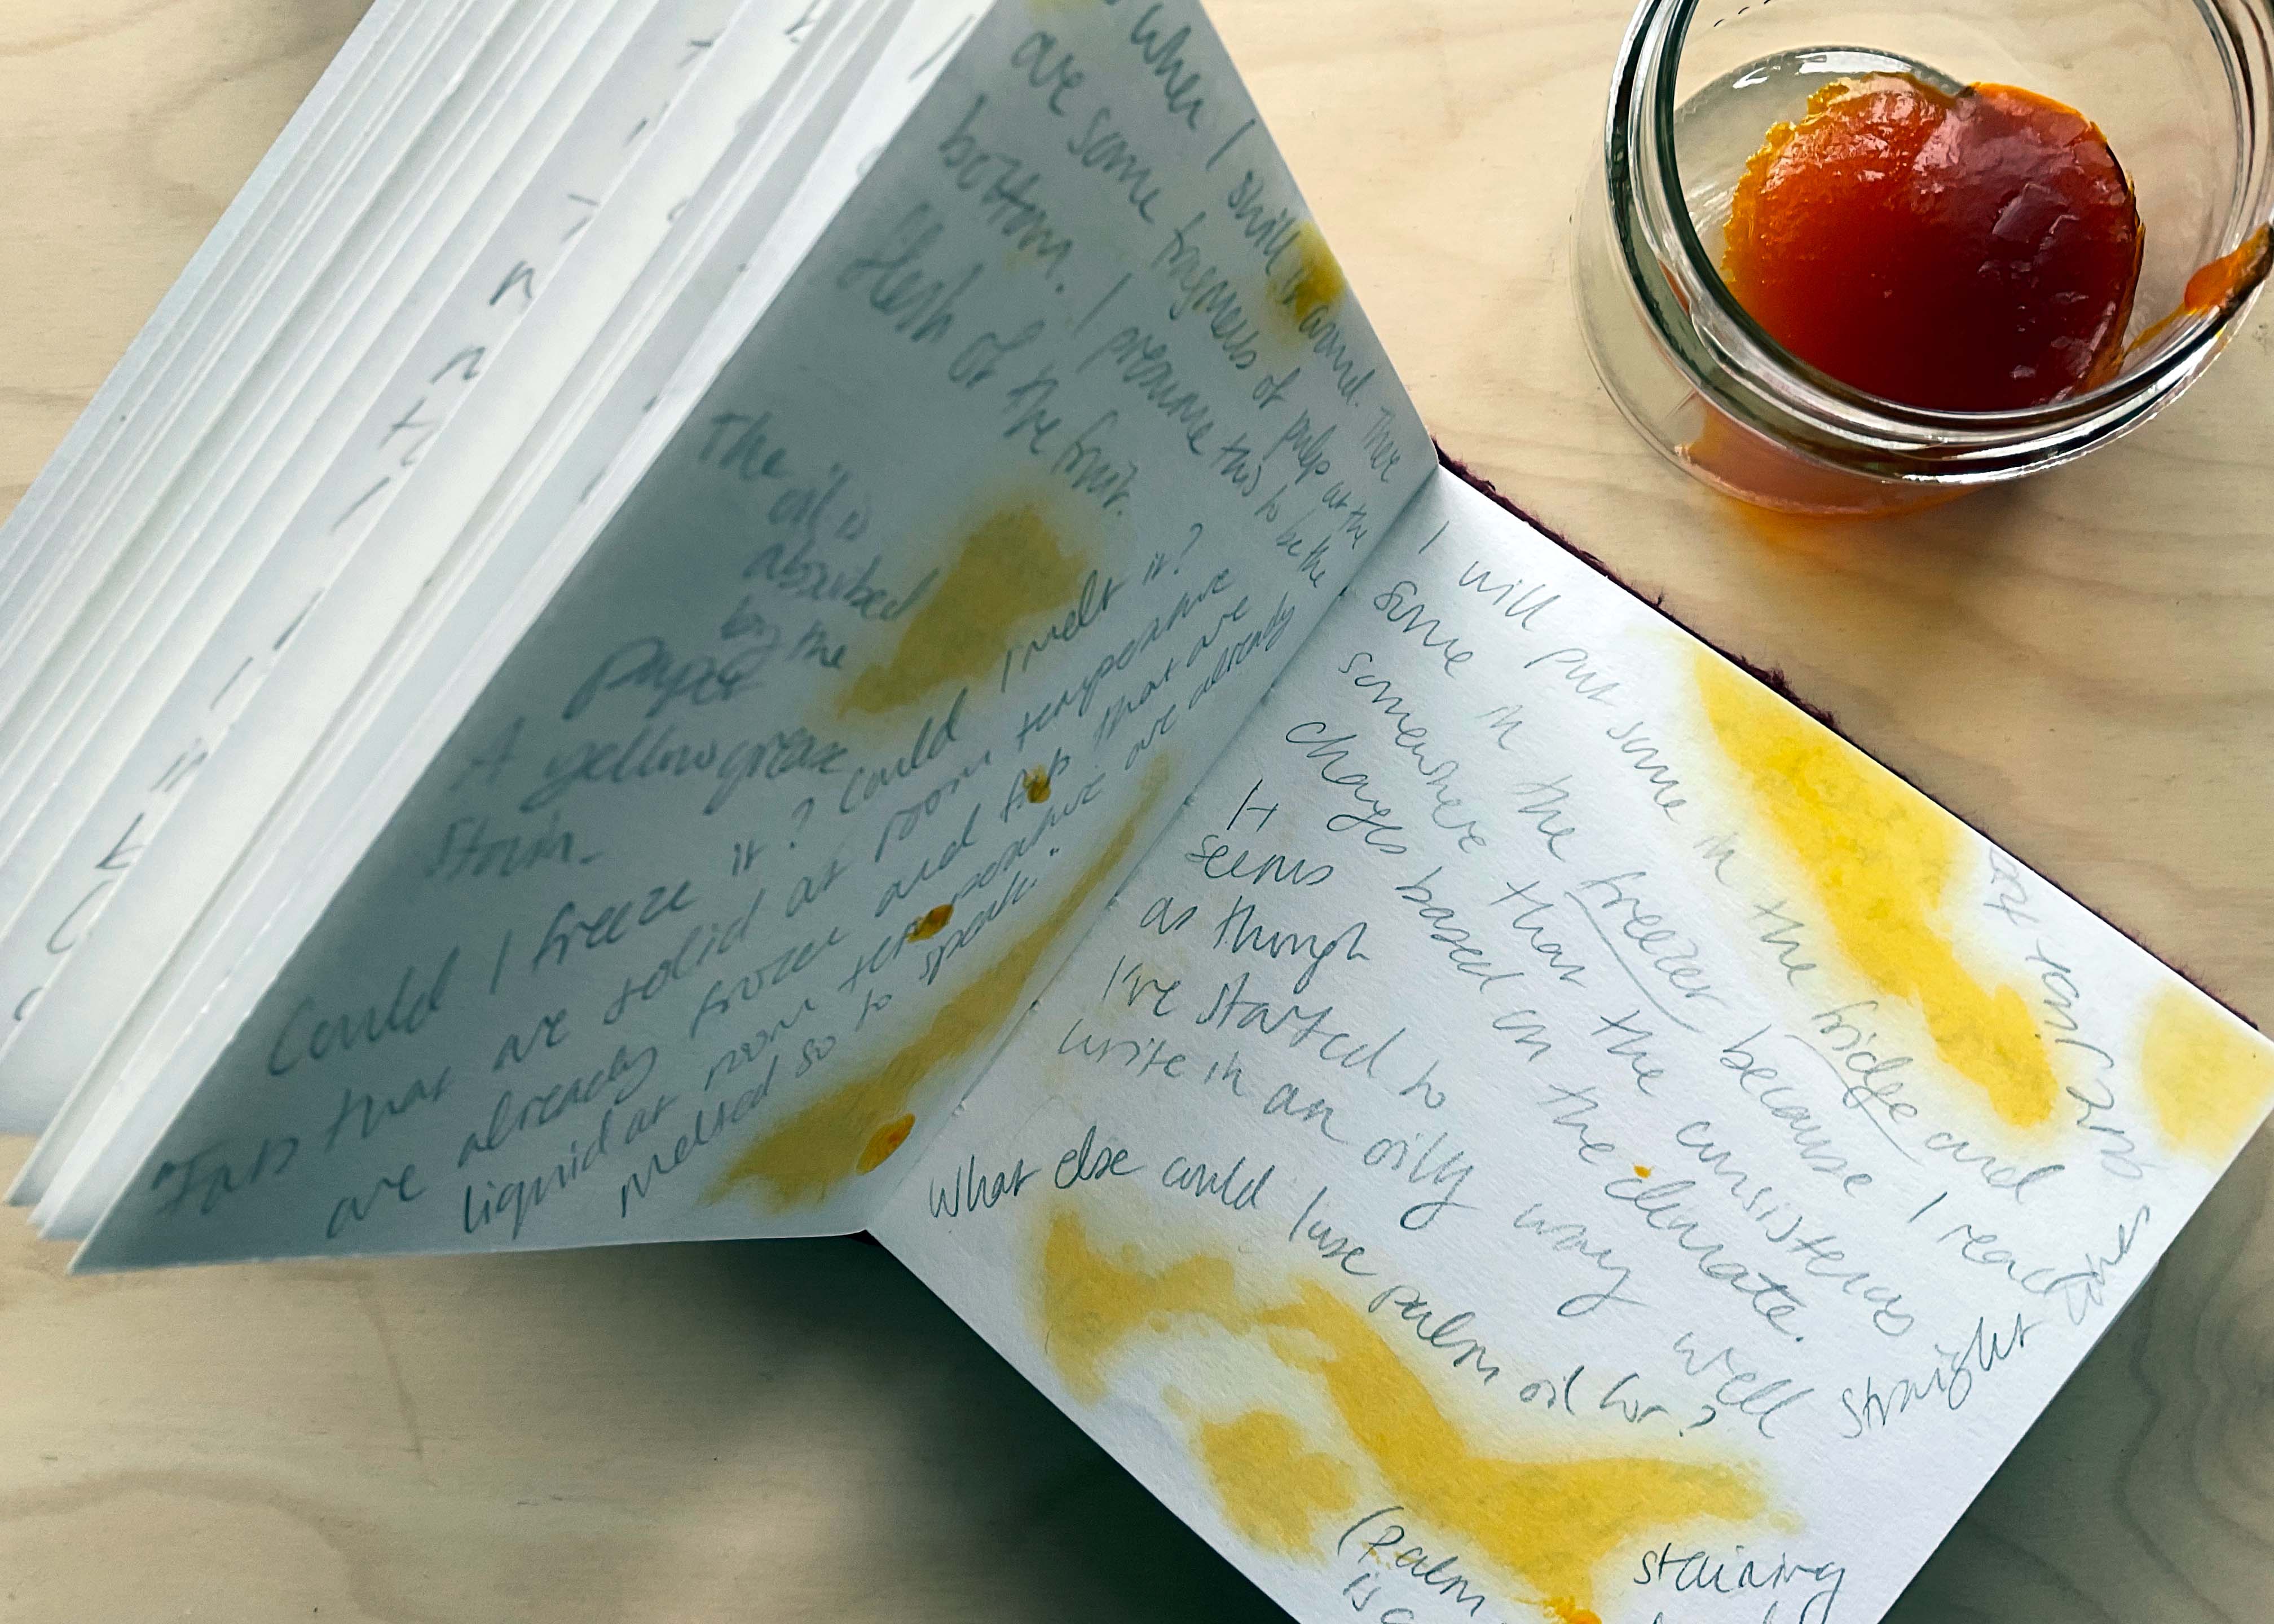 when I swill it around. There
are some fragments of pulp at the
bottom. I presume this to be the
flesh of the fruit.
The oil is
absorbed
by the
paper
A yellow grease
stain.
Could I freeze it? Could I melt it?
"Fats that are solid at room temperature
are already frozen and fats that are
liquid at room temperature are already
melted so to speak."
I will put some in the fridge and
some in the freezer because I read
somewhere that the consistency
changes based on the climate.
It
seems
as though
I've started to
write in an oily way well straight lines
What else could I use palm oil for?
(palm
is a
staining